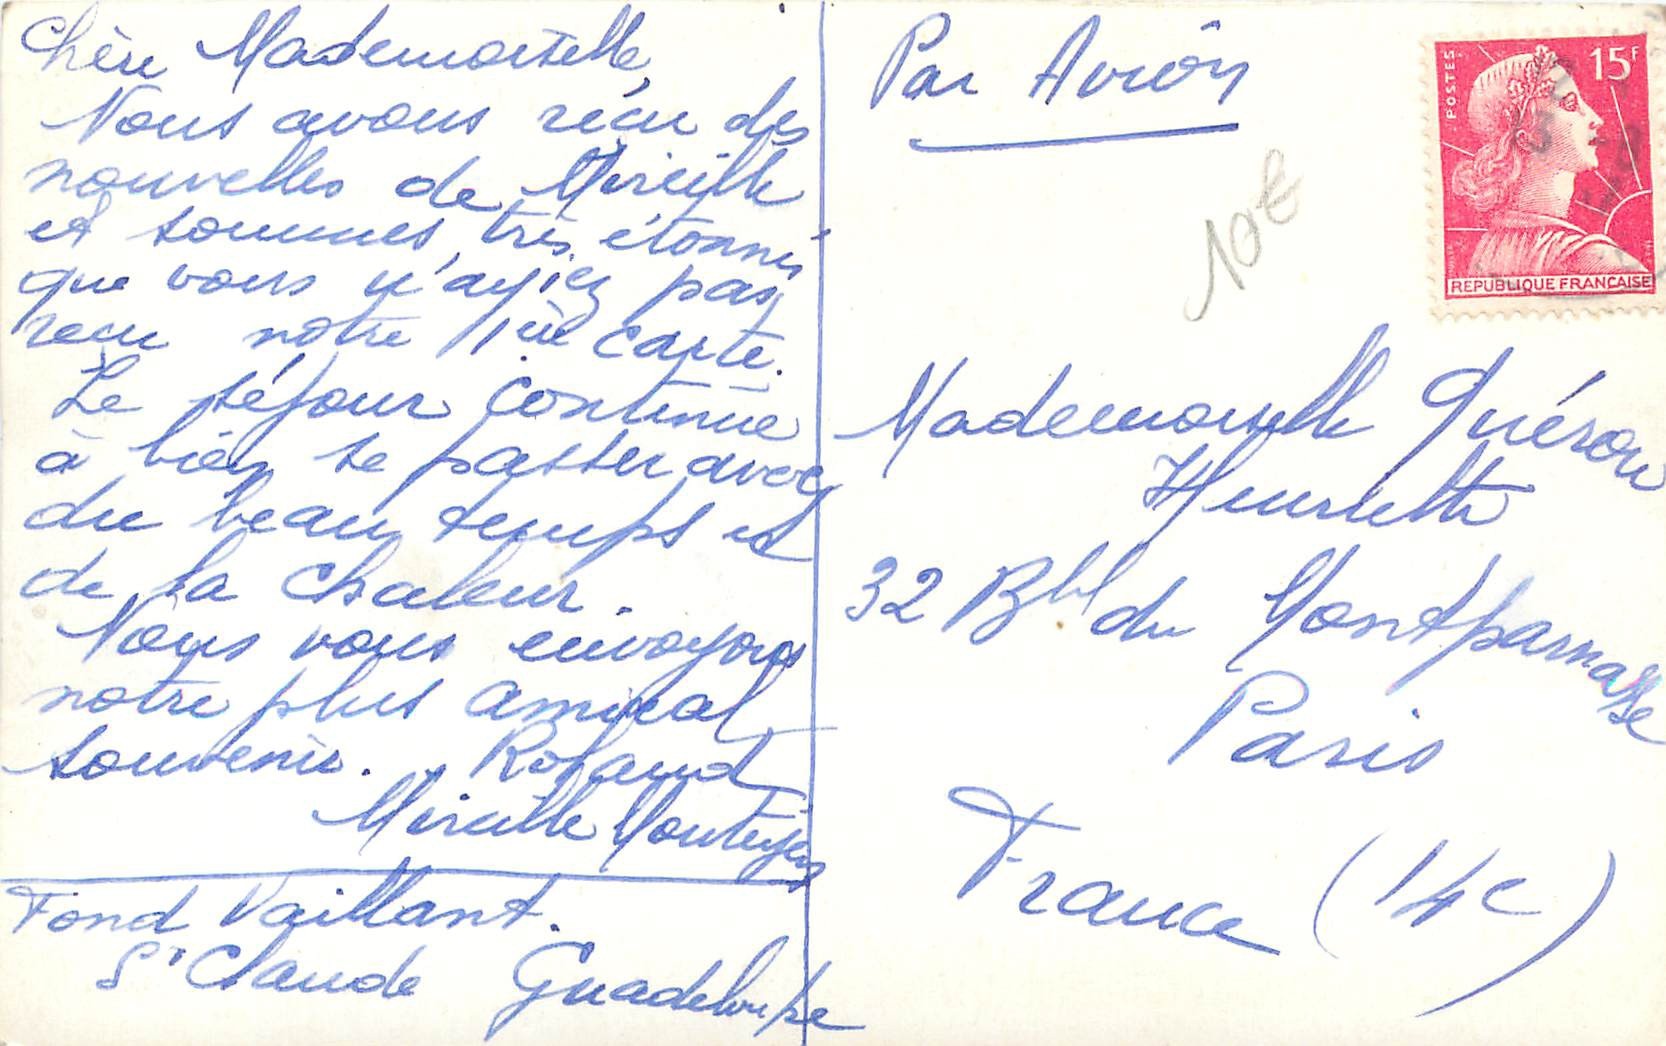 Chère Mademoiselle,
Nous avons reçu des
nouvelles de Mireille
et sommes très étonnés
que vous n'ayiez pas
reçu notre 1ère carte.
Le séjour continue
à bien se passer avec
du beau temps et
de la chaleur.
Nous vous envoyons
notre plus amical
souvenir. Roland
Mireille
Fond Vaillant.
St Claude Guadeloupe
Par Avion
10€
POSTES
15F
REPUBLIQUE FRANÇAISE
Mademoiselle
Henriette
32 Bd du Montparnasse
Paris
France (14e)